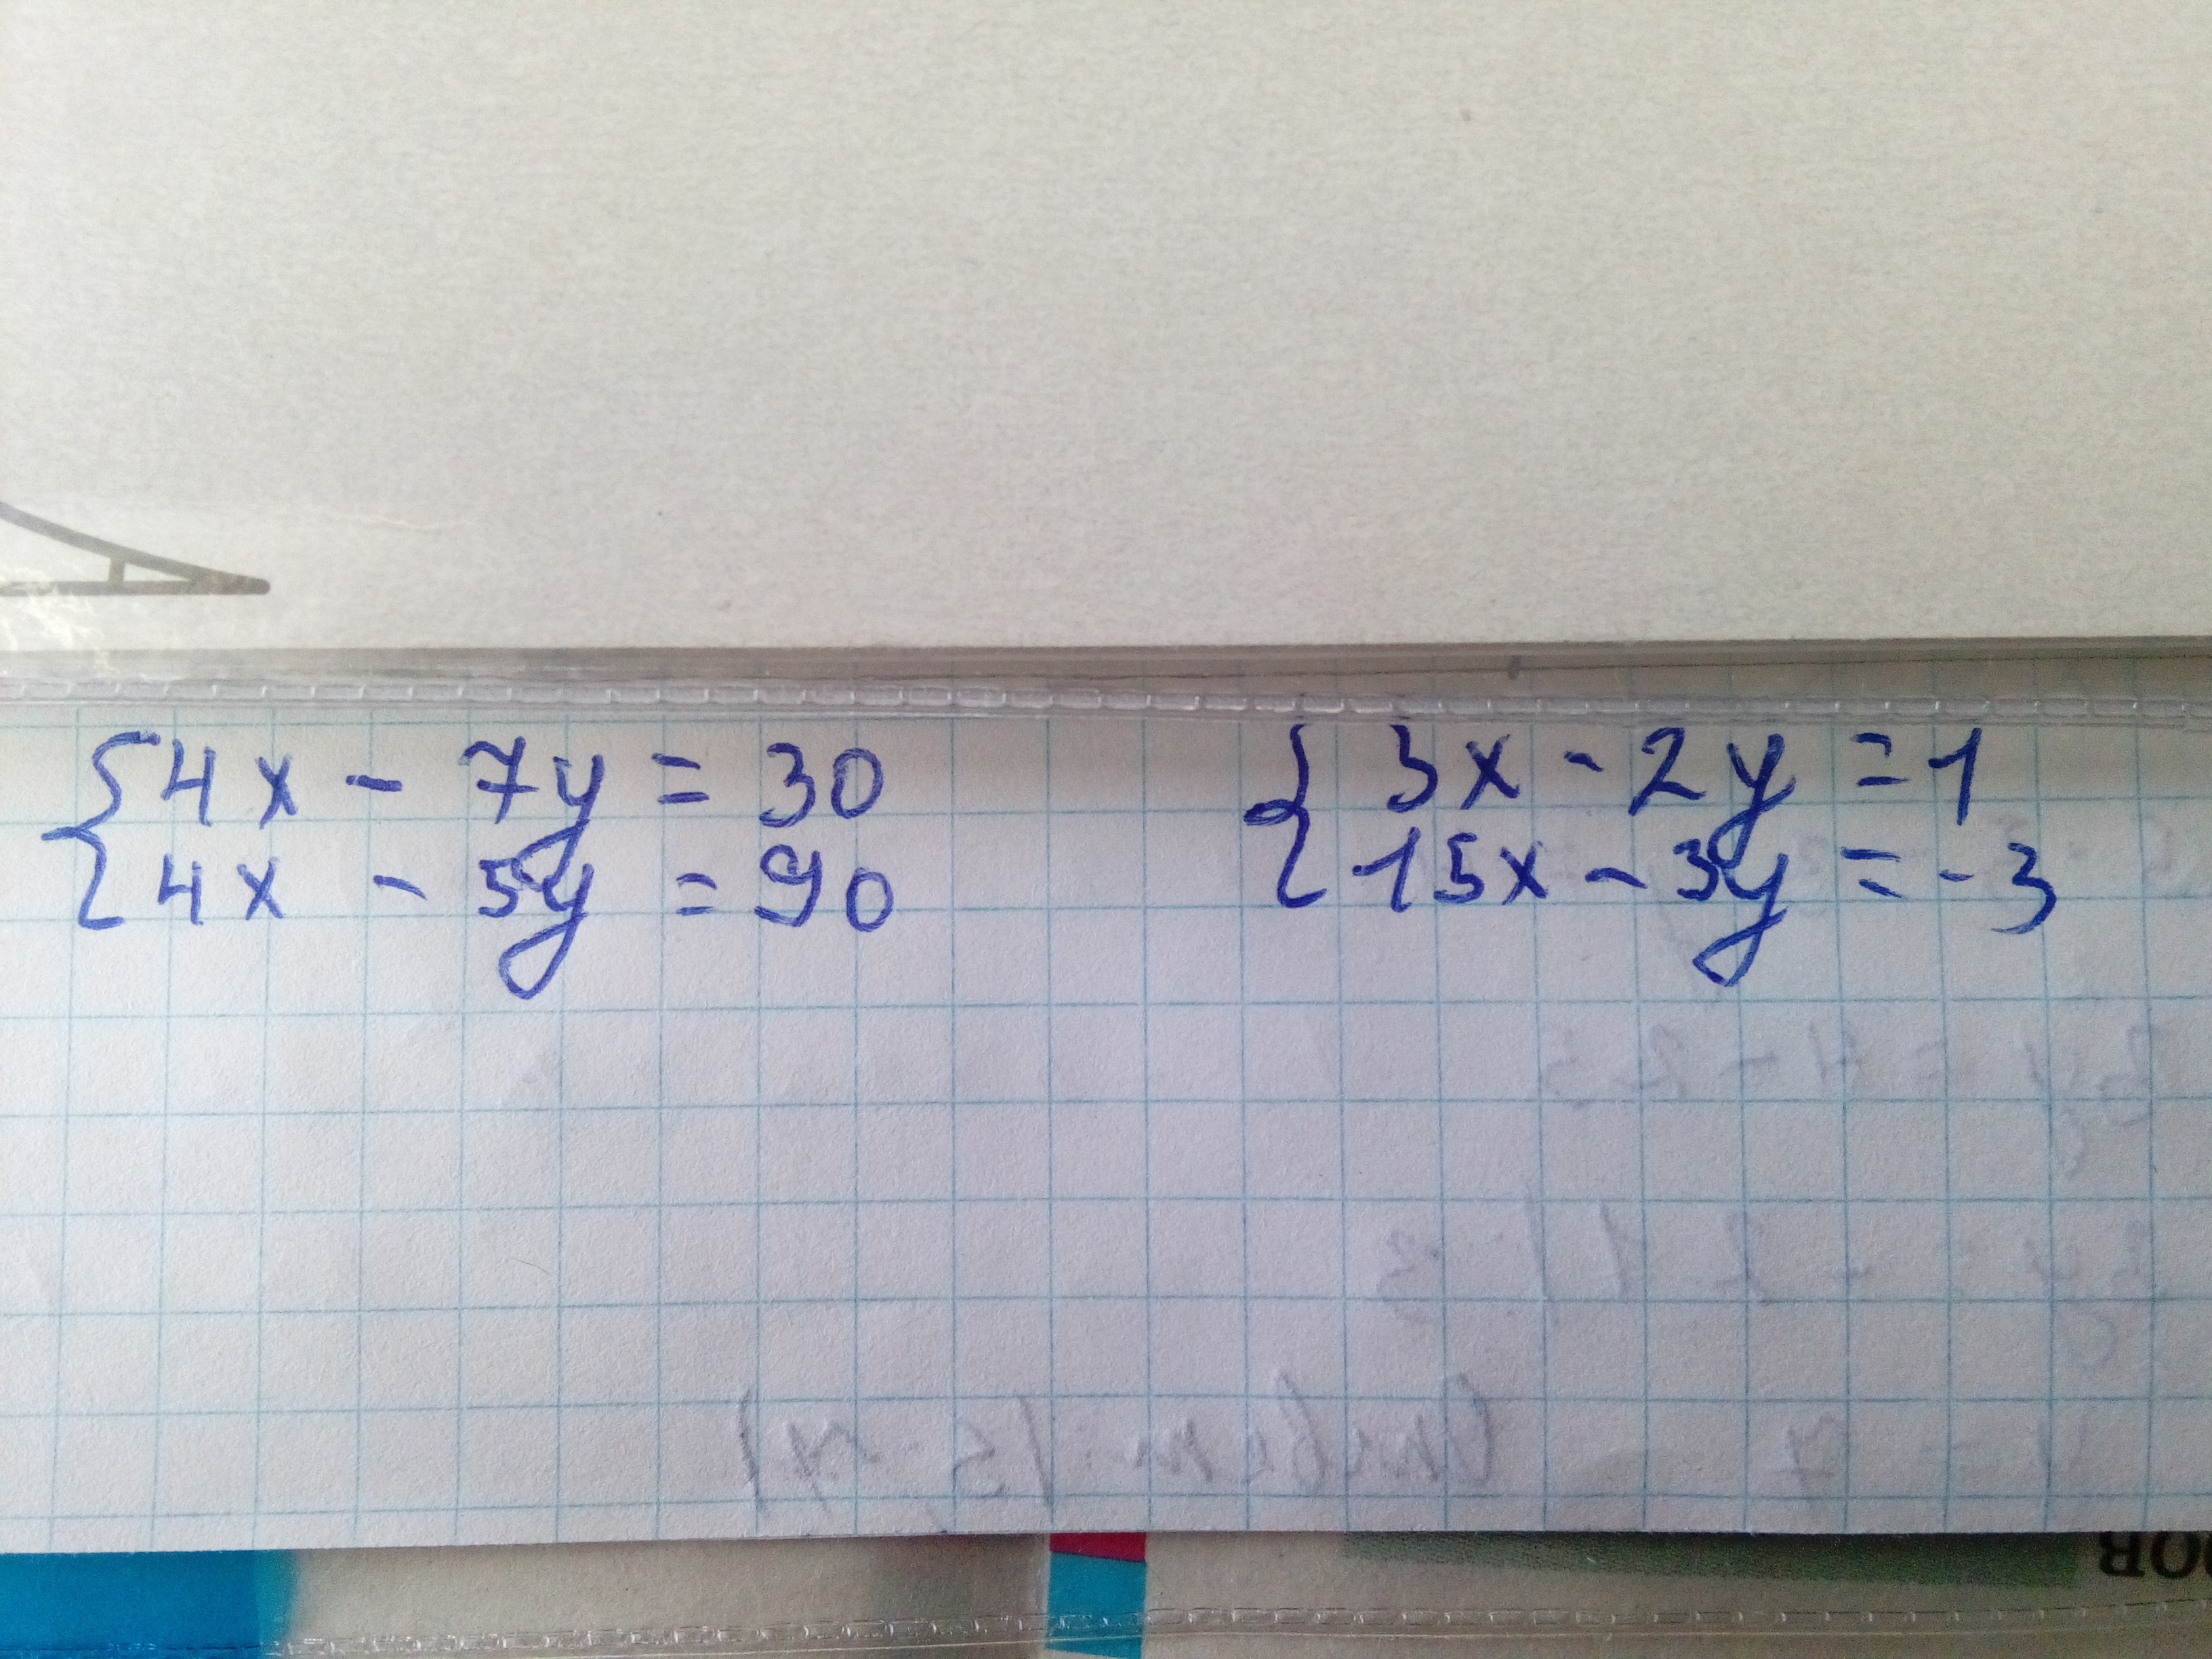 {4x - 7y = 30
{4x - 5y = 90
{3x - 2y = 1
{15x - 3y = -3